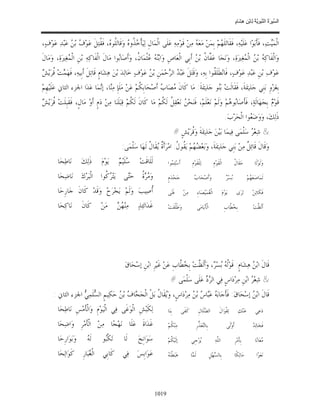 السيرة النبوية لابن هشام
الْمَيِّتِ، فَأَبَوْا عَلَيْهِ، فَقَاتَلَهُمْ بِمَنْ مَعَهُ مِنْ قَوْمِهِ حَتَّى الْمَالِ لِيَأْخُذُوهُ وَقَاتَلُوهُ، فَقُتِلَ عَوْفُ بْنُ عَبْدِ عَوْفٍ،
وَالْفَاكِهُ بْنُ الْمُغِيرَةِ، وَنَجَا عَفَّانُ بْنُ أَبِي الْعَاصِ وَابْنُهُ عُثْمَانُ، وَأَصَابُوا مَالَ الْفَاكِهِ بْنِ الْمُغِيرَةِ، وَمَالَ
عَوْفِ بْنِ عَبْدِ عَوْفٍ، فَانْطَلَقُوا بِهِ، وَقَتَلَ عَبْدُ الرَّحْمَنِ بْنُ عَوْفٍ خَالِدَ بْنَ هِشَامٍ قَاتِلَ أَبِيهِ، فَهَمَّتْ قُرَيْشٌ
بِغَزْوِ بَنِي جَذِيمَةَ، فَقَالَتْ بَنُو جَذِيمَةَ: مَا كَانَ مُصَابُ أَصْحَابِكُمْ عَنْ مَلَإٍ مِنَّا، إِنَّمَا عَدَا الجزء الثاني عَلَيْهِمْ
قَوْمٌ بِجَهَالَةٍ، فَأَصَابُوهُمْ وَلَمْ نَعْلَمْ، فَنَحْنُ نَعْقِلُ لَكُمْ مَا كَانَ لَكُمْ قِبَلَنَا مِنْ دَمٍ أَوْ مَالٍ، فَقَبِلَتْ قُرَيْشٌ
ذَلِكَ، وَوَضَعُوا الْحَرْبَ.
شِعْرُ سَلْمَى فِيمَا بَيْنَ جَذِيمَةَ وَقُرَيْشٍ
وَقَالَ قَائِلٌ مِنْ بَنِي جَذِيمَةَ، وَبَعْضُهُمْ يَقُولُ: امْرَأَةٌ يُقَالُ لَهَا سَلْمَى:
وَلَوْلَا مَقَالُ الْقَوْمِ لِلْقَوْمِ أَسْلِمُوا لَلَاقَتْ سُلَيْمٌ يَوْمَ ذَلِكَ نَاطِحَا
لَمَاصَعَهُمْ بُسْرٌ وَأَصْحَابُ جَحْدَمٍ وَمُرَّةُ حَتَّى يَتْرُكُوا الْبَرْكَ ضَابِحَا
فَكَائِنْ تَرَى يَوْمَ الْغُمَيْصَاءِ مِنْ فَتًى أُصِيبَ وَلَمْ يَجْرَحْ وَقَدْ كَانَ جَارِحَا
أَلَظَّتْ بِخُطَّابِ الْأَيَامَى وَطَلَّقَتْ غَدَاتَئِذٍ مِنْهُنَّ مَنْ كَانَ نَاكِحَا
قَالَ ابْنُ هِشَامٍ: قَوْلُهُ بُسْرٌ، وَأَلَظَّتْ بِخُطَّابِ عَنْ غَيْرِ ابْنِ إسْحَاقَ.
شِعْرُ ابْنِ مِرْدَاسٍ فِي الرَّدِّ عَلَى سَلْمَى
قَالَ ابْنُ إسْحَاقَ: فَأَجَابَهُ عَبَّاسُ بْنُ مِرْدَاسٍ، وَيُقَالُ بَلْ الْجَحَّافُ بْنُ حَكِيمٍ السُّلَمِيُّ الجزء الثاني :
دَعِي عَنْكِ تِقْوَالَ الضَّلَالِ كَفَى بِنَا لِكَبْشِ الْوَغَى فِي الْيَوْمِ وَالْأَمْسِ نَاطِحَا
فَخَالِدُ أَوْلَى بِالتَّعَذُّرِ مِنْكُمْ غَدَاةَ عَلَا نَهْجًا مِنْ الْأَمْرِ وَاضِحَا
مُعَانًا بِأَمْرِ اللَّهِ يُزْجِي إلَيْكُمْ سَوَانِحَ لَا تَكْبُو لَهُ وَبَوَارِحَا
نَعَوْا مَالِكًا بِالسَّهْلِ لَمَّا هَبَطْنَهُ عَوَابِسَ فِي كَابِي الْغُبَارِ كَوَالِحَا
1019